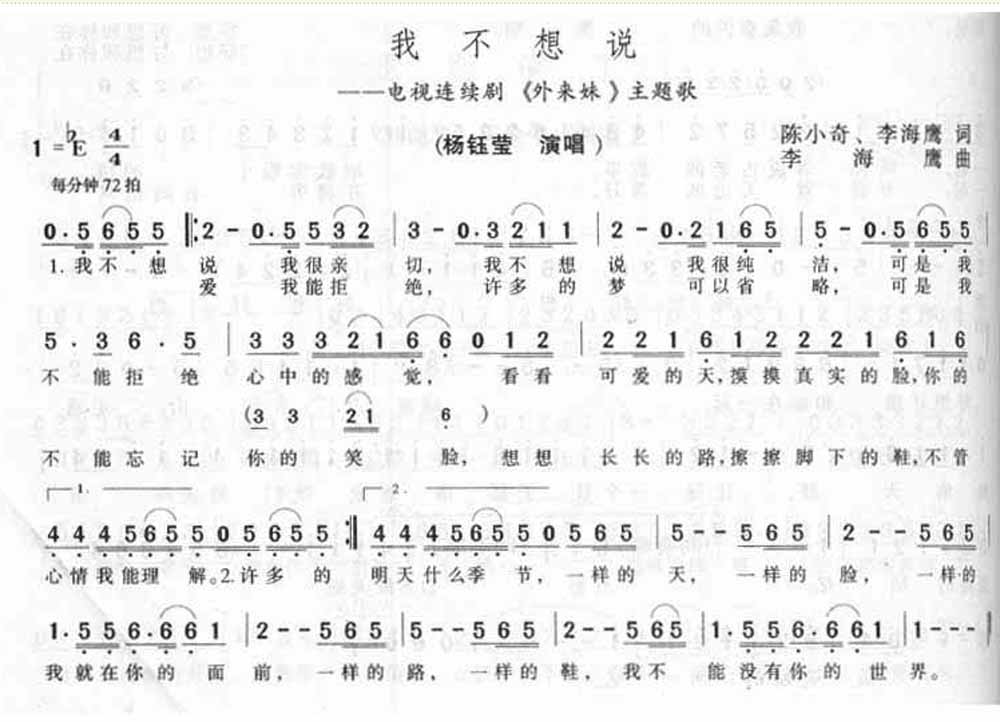 我 不 想 说
——电视连续剧《外来妹》主题歌
1=♭E 4/4
(杨钰莹 演唱)
陈小奇、李海鹰 词
李 海 鹰 曲
每分钟72拍
0·5 6 5 5 ‖: 2 - 0·5 5 3 2 | 3 - 0·3 2 1 1 | 2 - 0·2 1 6 5 | 5 - 0·5 6 5 5 |
1.我不想 说 我很亲 切, 我不想 说 我很纯 洁, 可是我
爱 我能拒 绝, 许多的 梦 可以省 略, 可是我
5· 3 6· 5 | 3 3 3 2 1 6 6 0 1 2 | 2 2 1 6 1 2 2 2 2 1 6 1 6 |
不 能拒 绝 心中的感 觉, 看看 可爱的天,摸摸真实的脸,你的
(3 3 2 1 6 )
不 能忘 记 你的 笑 脸, 想想 长长的路,擦擦脚下的鞋,不管
1. 2.
4 4 4 5 6 5 5 0 5 6 5 5 :‖ 4 4 4 5 6 5 5 0 5 6 5 | 5 - - 5 6 5 | 2 - - 5 6 5 |
心情我能理 解。2.许多的 明天什么季 节,一样的 天, 一样的 脸, 一样的
1· 5 5 6· 6 6 1 | 2 - - 5 6 5 | 5 - - 5 6 5 | 2 - - 5 6 5 | 1· 5 5 6· 6 6 1 | 1 - - - |
我就在你的面 前, 一样的 路, 一样的 鞋, 我不 能没有你的世 界。